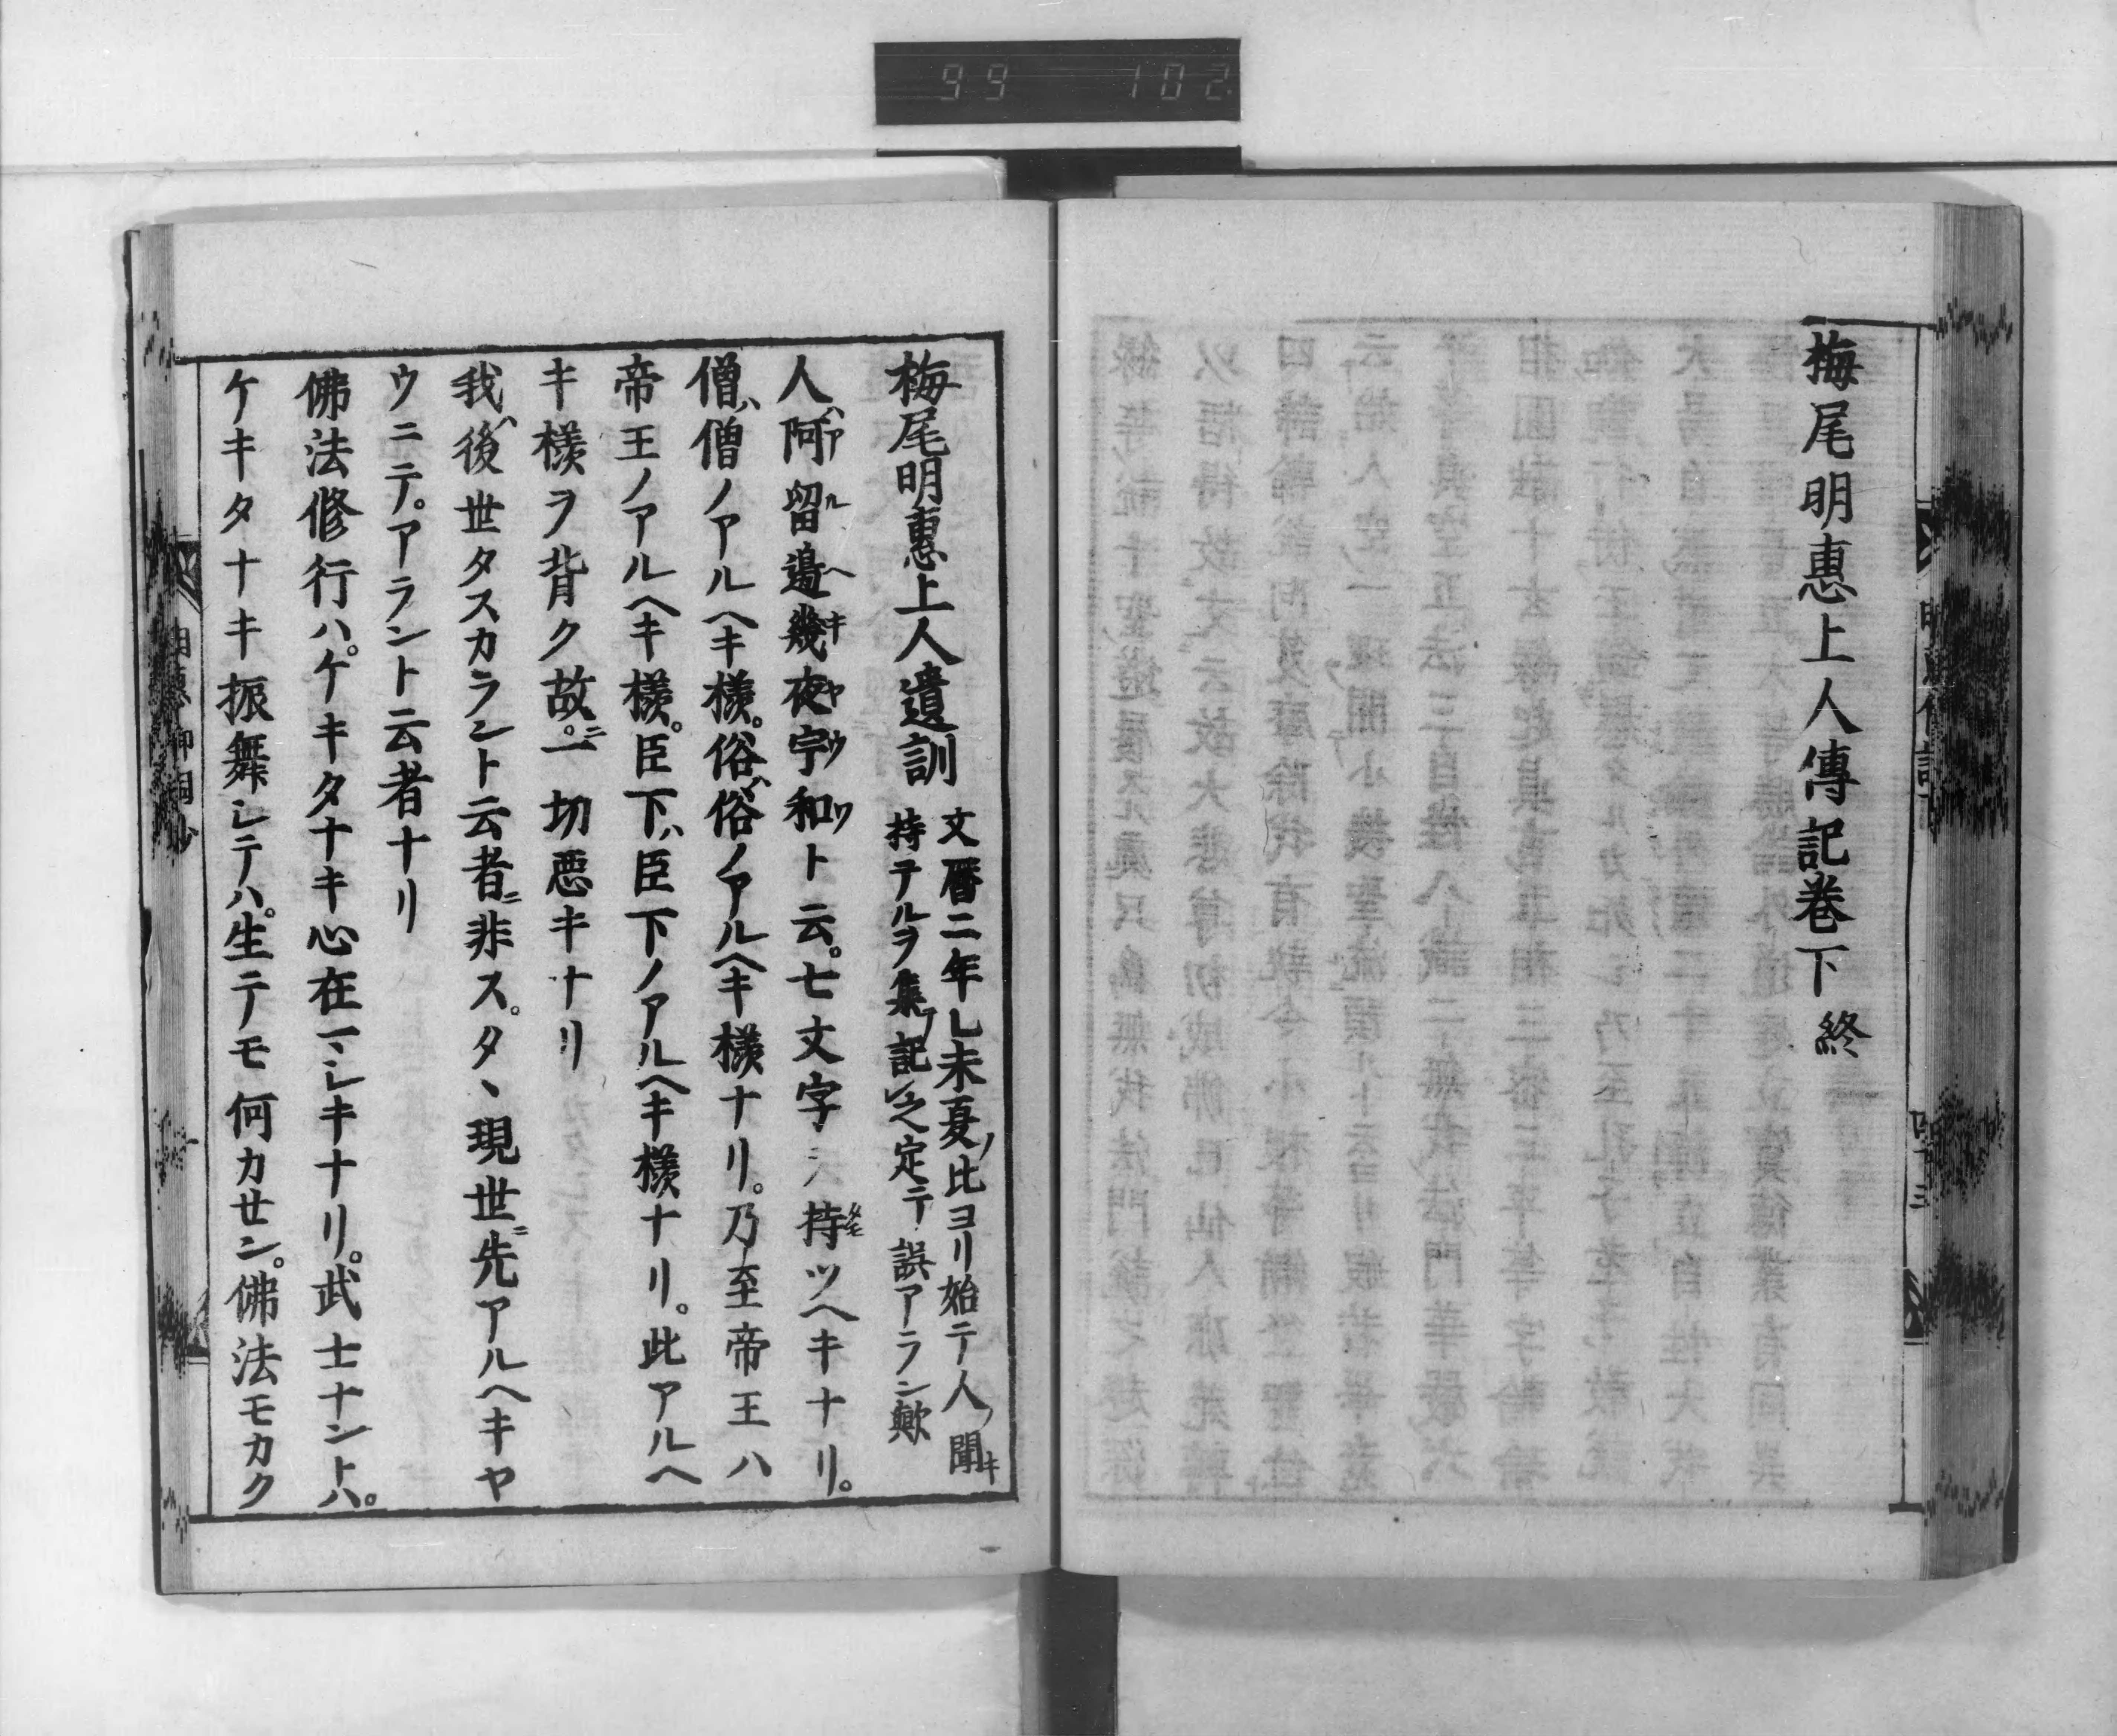 99 102
梅尾明惠上人傳記巻下 終
梅尾明惠上人遺訓
文暦二年乚未夏ノ比ヨリ始テ人ノ聞キ
持テルヲ集ノ記之定テ誤アラン歟
人ハ阿留邉幾夜宇和ト云。七文字ヲ持ツヘキナリ。
アルヘキヤウワ
タモ
僧ハ僧ノアルヘキ樣。俗ハ俗ノアルヘキ樣ナリ。乃至帝王ハ
帝王ノアルヘキ樣。臣下ハ臣下ノアルヘキ樣ナリ。此アルヘ
キ樣ヲ背ク故ニ。一切悪キナリ
我ハ後世タスカラント云者ニ非ス。タヽ現世ニ先アルヘキヤ
ウニテ。アラント云者ナリ
佛法修行ハ。ケキタナキ心在マシキナリ。武士ナントハ。
ケキタナキ振舞シテハ。生テモ何カセン。佛法モカク